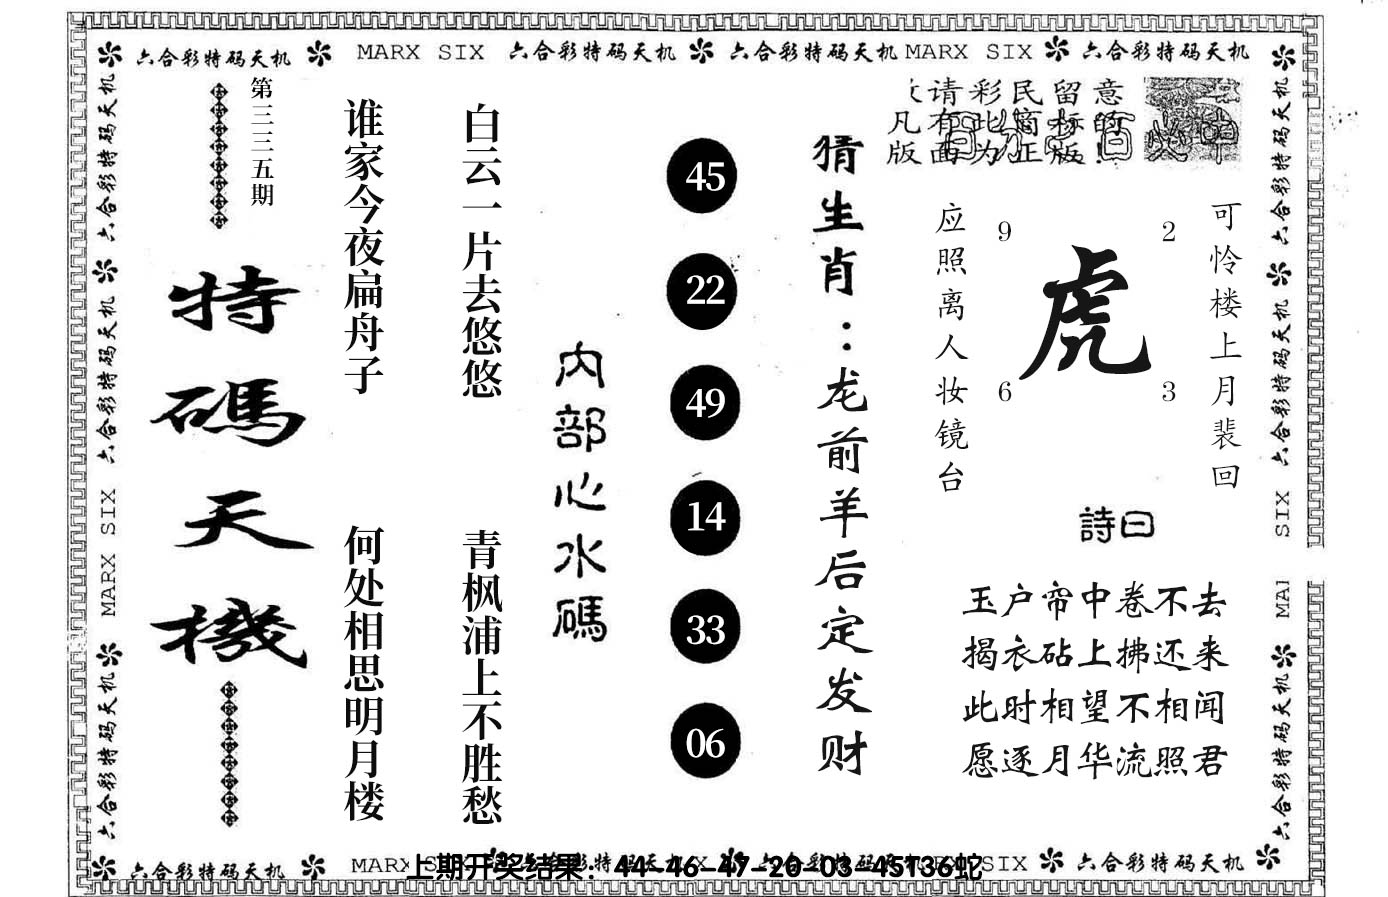 六合彩特码天机 MARX SIX 六合彩特码天机 六合彩特码天机 MARX SIX 六合彩特码天机
六合彩特码天机 六合彩特码天机 MARX SIX 六合彩特码天机
第三三五期
特碼天機
谁家今夜扁舟子 何处相思明月楼
白云一片去悠悠 青枫浦上不胜愁
内部心水碼
45
22
49
14
33
06
猜生肖：龙前羊后定发财
请彩民留意
凡有此商标的
版面为正版!
可怜楼上月裴回
应照离人妆镜台
9 2
虎
6 3
詩曰
玉户帘中卷不去
揭衣砧上拂还来
此时相望不相闻
愿逐月华流照君
六合彩特码天机 六合彩特码天机 SIX 六合彩特码天机
六合彩特码天机 MARX SIX 六合彩特码天机 SIX 六合彩特码天机
上期开奖结果：44-46-47-20-03-45T36蛇